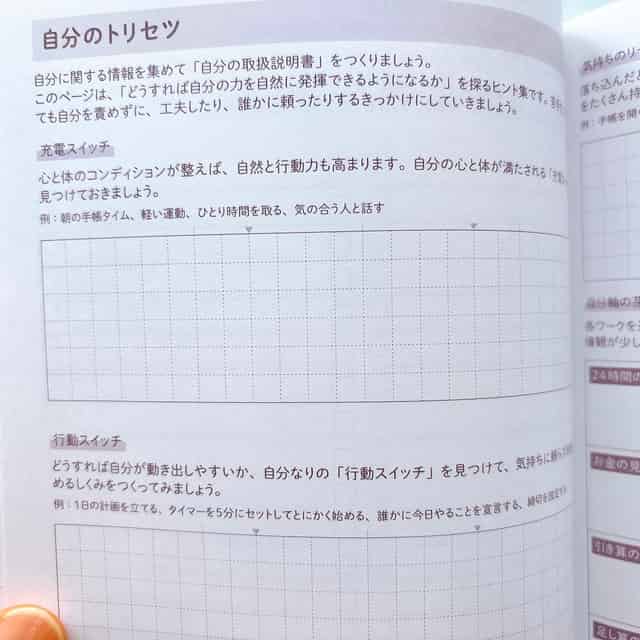 自分のトリセツ
自分に関する情報を集めて「自分の取扱説明書」をつくりましょう。
このページは、「どうすれば自分の力を自然に発揮できるようになるか」を探るヒント集です。
ても自分を責めずに、工夫したり、誰かに頼ったりするきっかけにしていきましょう。
充電スイッチ
心と体のコンディションが整えば、自然と行動力も高まります。自分の心と体が満たされる「
見つけておきましょう。
例：朝の手帳タイム、軽い運動、ひとり時間を取る、気の合う人と話す
行動スイッチ
どうすれば自分が動き出しやすいか、自分なりの「行動スイッチ」を見つけて、気持ちに頼らず
めるしくみをつくってみましょう。
例：1日の計画を立てる、タイマーを5分にセットしてとにかく始める、誰かに今日やることを宣言する、締切を設定す
気持ちの
落ち込んだ
をたくさん持
例：手帳を開
自分軸の
各ワークを
値観が少し
24時間の
お金の見
引き算の